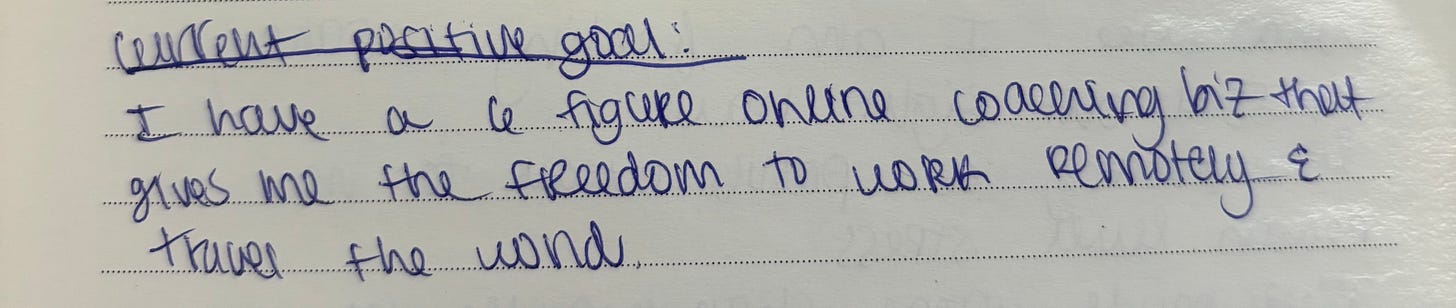 Current positive goal:
I have a 6 figure online coaching biz that
gives me the freedom to work remotely &
travel the world.